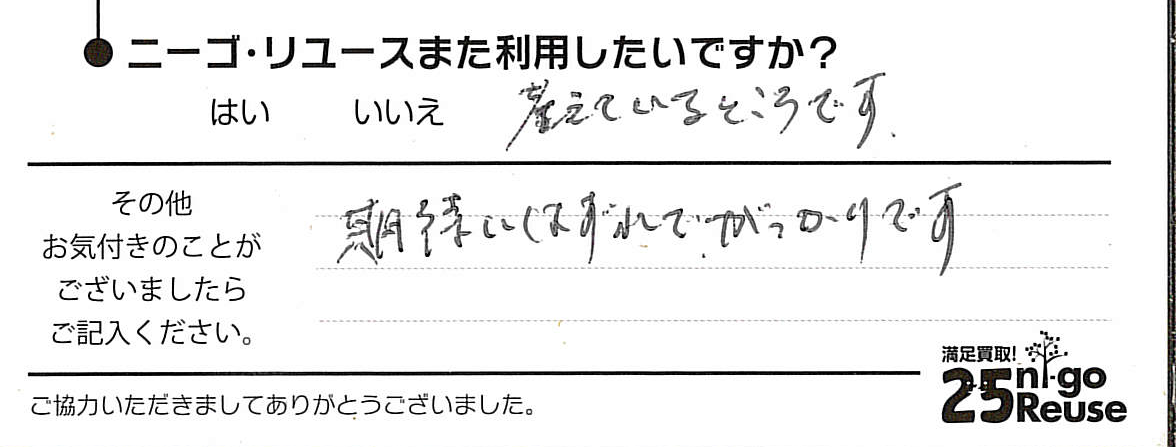 ニーゴ・リユースまた利用したいですか？
はい いいえ 考えているところです.
その他
お気付きのことが
ございましたら
ご記入ください。
期待はずれでがっかりです
満足買取!
25 ni-go
Reuse
ご協力いただきましてありがとうございました。